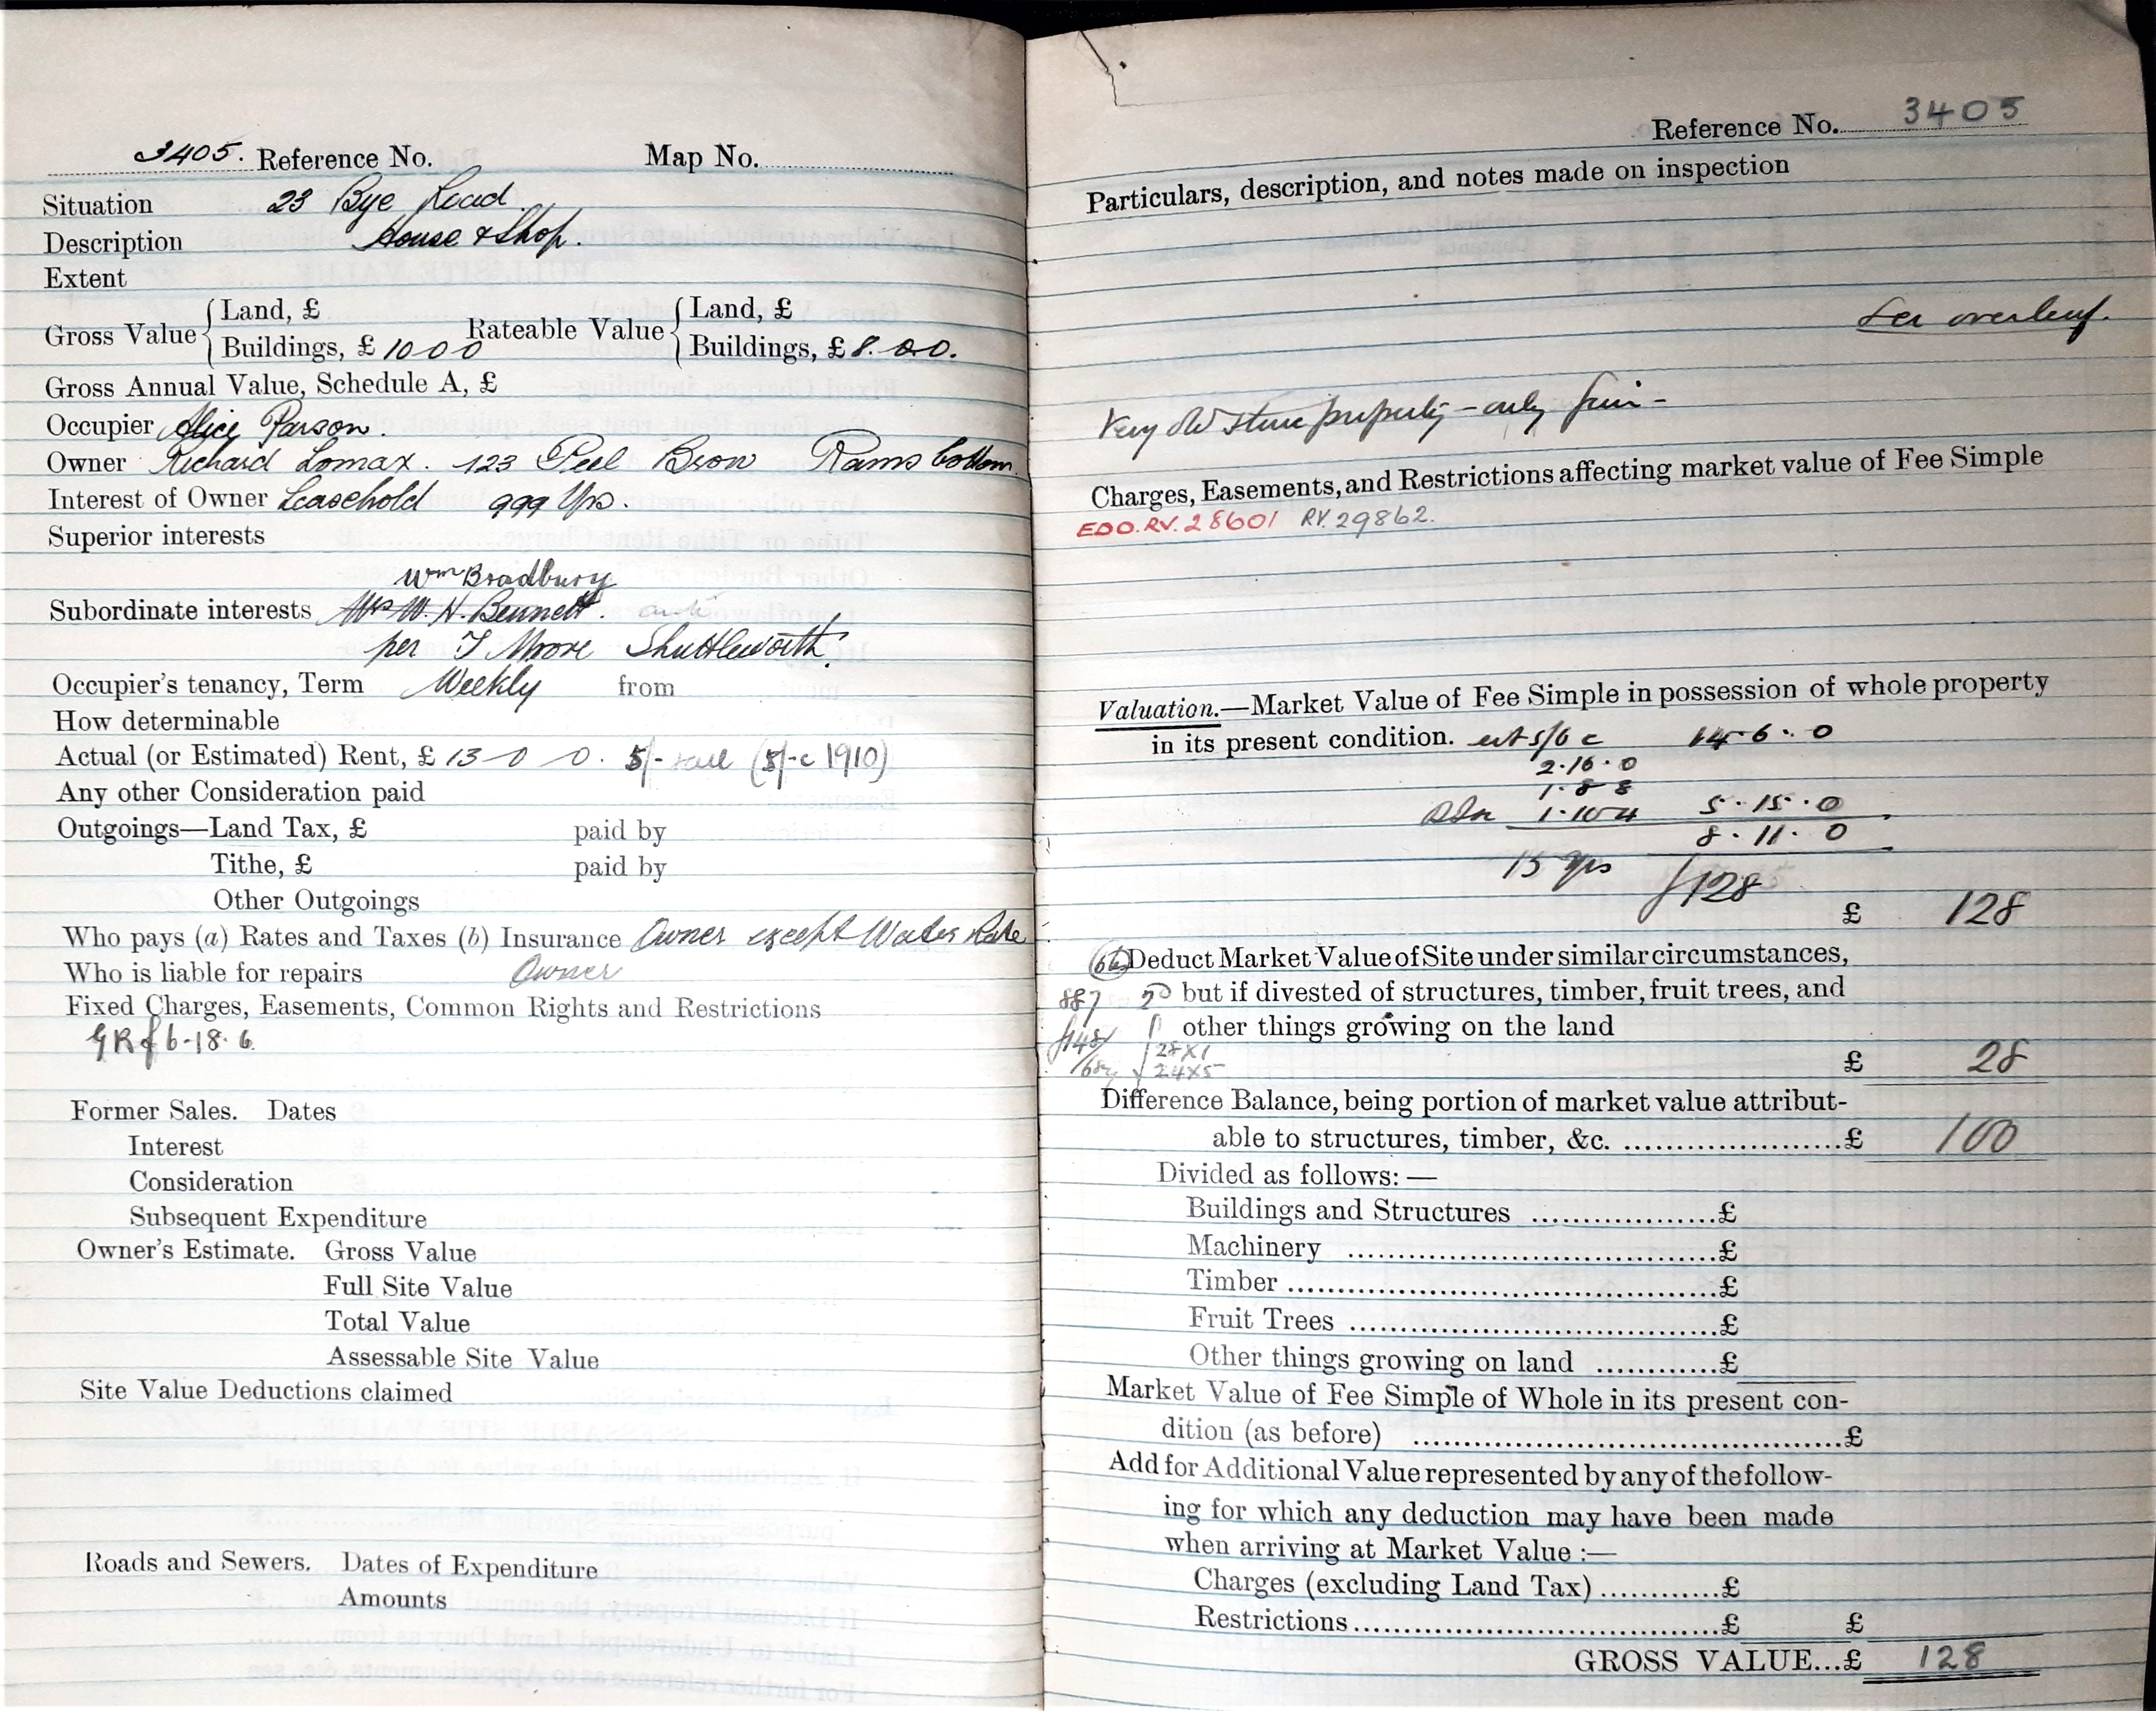 3405. Reference No. Map No.
Situation 23 Bye Road.
Description House & Shop.
Extent
Gross Value { Land, £
Buildings, £ 10 0 0
Rateable Value { Land, £
Buildings, £ 8. 0. 0.
Gross Annual Value, Schedule A, £
Occupier Alice Parson.
Owner Richard Lomax. 123 Peel Brow Ramsbottom.
Interest of Owner Leasehold 999 Yrs.
Superior interests
Wm Bradbury
Subordinate interests Mrs W. H. Bennett.
per T Moore Shuttleworth.
Occupier's tenancy, Term Weekly from
How determinable
Actual (or Estimated) Rent, £ 13 - 0 0. 5/- (5/- c 1910)
Any other Consideration paid
Outgoings—Land Tax, £ paid by
Tithe, £ paid by
Other Outgoings
Who pays (a) Rates and Taxes (b) Insurance Owner except Water Rate
Who is liable for repairs Owner
Fixed Charges, Easements, Common Rights and Restrictions
GR £6-18. 6.
Former Sales. Dates
Interest
Consideration
Subsequent Expenditure
Owner's Estimate. Gross Value
Full Site Value
Total Value
Assessable Site Value
Site Value Deductions claimed
Roads and Sewers. Dates of Expenditure
Amounts
Reference No. 3405
Particulars, description, and notes made on inspection
See overleaf.
Very old stone property - only fair -
Charges, Easements, and Restrictions affecting market value of Fee Simple
EDO. RV. 28601 RV. 29862.
Valuation.—Market Value of Fee Simple in possession of whole property
in its present condition. est 5/6 c 14. 6. 0
2. 16. 0
1. 8 8
1. 10 4 5. 15. 0
8. 11. 0
15 yrs £128
£ 128
Deduct Market Value of Site under similar circumstances,
887 50 but if divested of structures, timber, fruit trees, and
other things growing on the land
28x1
24x5
£ 28
Difference Balance, being portion of market value attribut-
able to structures, timber, &c. ....................£ 100
Divided as follows:—
Buildings and Structures .................£
Machinery .................£
Timber .................£
Fruit Trees .................£
Other things growing on land ...........£
Market Value of Fee Simple of Whole in its present con-
dition (as before) .................£
Add for Additional Value represented by any of the follow-
ing for which any deduction may have been made
when arriving at Market Value :—
Charges (excluding Land Tax) ............£
Restrictions .................£ £
GROSS VALUE...£ 128